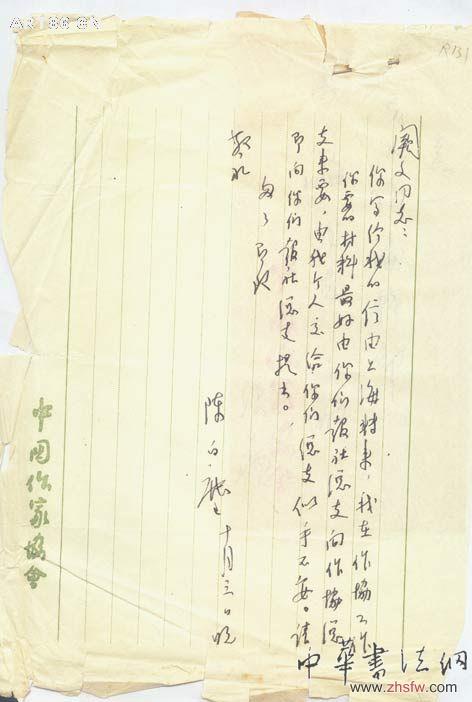 阙文同志：
你写给我的信由上海转来，我在作协工作
你要的材料最好由你们报社总支向作协总
支来要，由我个人交给你们总支似乎不妥。请
即向你们报社总支提出。
匆匆即致
敬礼
陈白尘 十月三日晚
中国作家协会
R131
中華書法網
www.zhsfw.com